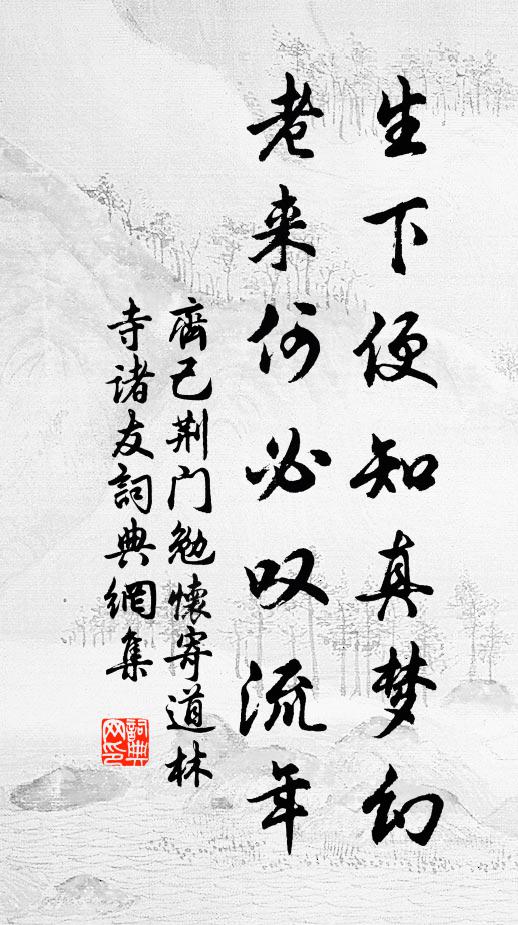 生下便知真梦幻
老来何必叹流年
齊己荆门勉懷寄道林
寺诸友詞典網集
詞典
网印